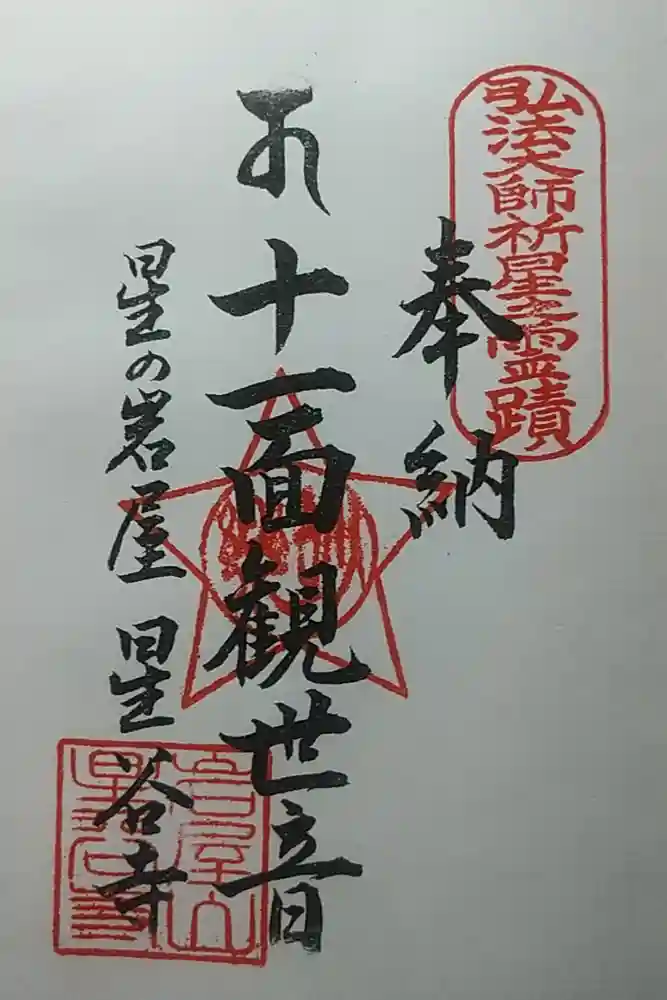 弘法大師祈星之霊蹟
奉納
十一面観世音
星の岩屋 星谷寺
岩屋山
星谷寺